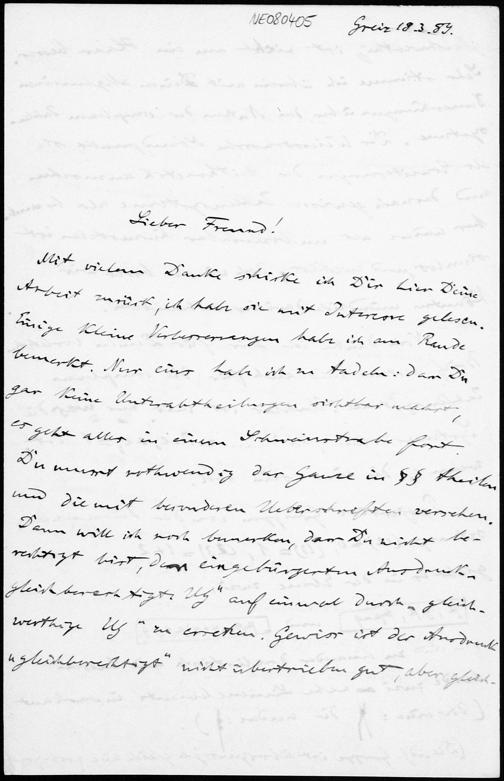 NE080405
Greiz 18.3.89.
Lieber Freund!
Mit vielem Danke schicke ich Dir hier Deine
Arbeit zurück, ich habe sie mit Interesse gelesen.
Einige kleine Verbesserungen habe ich am Rande
bemerkt. Nur eins habe ich zu tadeln: dass Du
gar keine Unterabtheilungen sichtbar machst,
es geht alles in einem fort.
Du musst nothwendig das Ganze in §§ theilen
und die mit besonderen Ueberschriften versehen.
Dann will ich noch bemerken, dass Du nicht be-
rechtigt bist, den eingebürgerten Ausdruck
gleichberechtigte Ug" auf einmal durch "gleich-
werthige Ug" zu ersetzen. Gewiss ist der Ausdruck
"gleichberechtigt" nicht übertrieben gut, aber gleich-